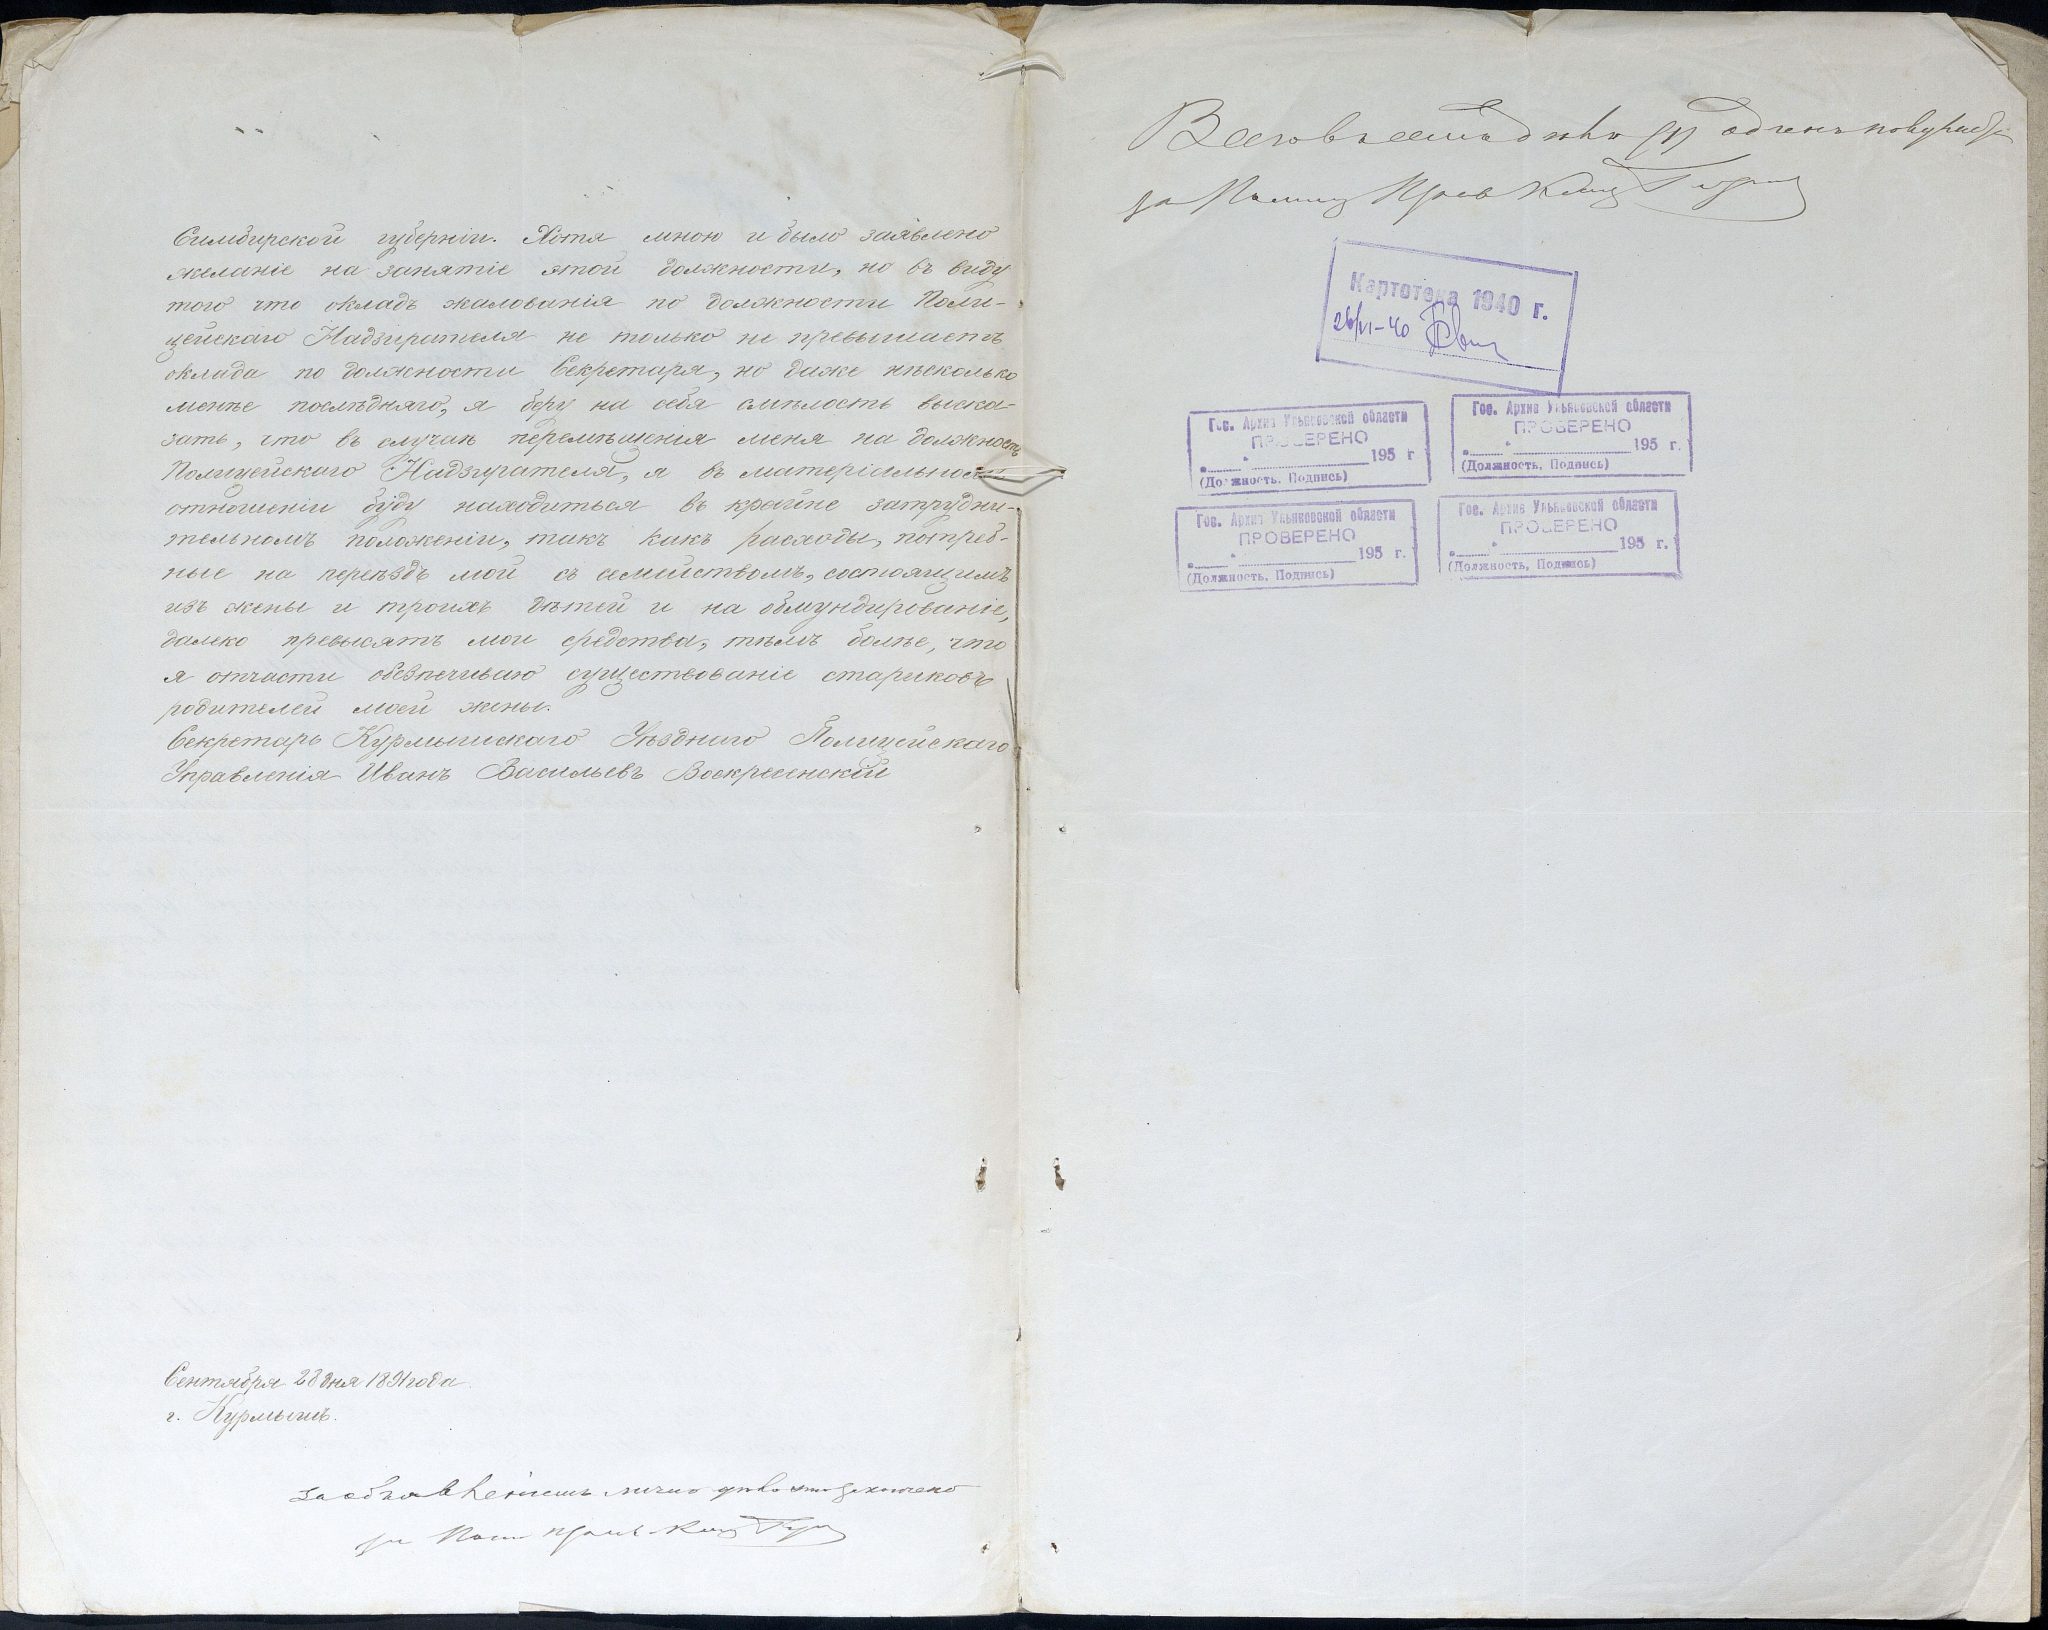 Симбирской губерніи. Хотя мною и было заявлено
желаніе на занятіе этой должности, но въ виду
того что окладъ жалованія по должности Поли-
цейскаго Надзирателя не только не превышаетъ
оклада по должности Секретаря, но даже нѣсколько
менѣе послѣдняго, я беру на себя смѣлость выска-
зать, что въ случаѣ перемѣщенія меня на должность
Полицейскаго Надзирателя, я въ матеріальномъ
отношеніи буду находиться въ крайне затрудни-
тельномъ положеніи, такъ какъ расходы, потреб-
ные на переѣздъ мой съ семействомъ, состоящимъ
изъ жены и троихъ дѣтей и на обмундированіе,
далеко превысятъ мои средства, тѣмъ болѣе, что
я отчасти обезпечиваю существованіе стариковъ
родителей моей жены.
Секретарь Курмышскаго Уѣзднаго Полицейскаго
Управленія Иванъ Васильевъ Воскресенскій
Сентября 28 дня 1891 года.
г. Курмышъ.
за объявленіемъ лично дѣло это закончено
за
Всего въ семъ дѣлѣ (1) одинъ
за
Картотека 1940 г.
26/VI-40
Гос. Архив Ульяновской области
ПРОВЕРЕНО
"___" ____________195 г.
(Должность, Подпись)
Гос. Архив Ульяновской области
ПРОВЕРЕНО
"___" ____________195 г.
(Должность, Подпись)
Гос. Архив Ульяновской области
ПРОВЕРЕНО
"___" ____________195 г.
(Должность, Подпись)
Гос. Архив Ульяновской области
ПРОВЕРЕНО
"___" ____________195 г.
(Должность, Подпись)